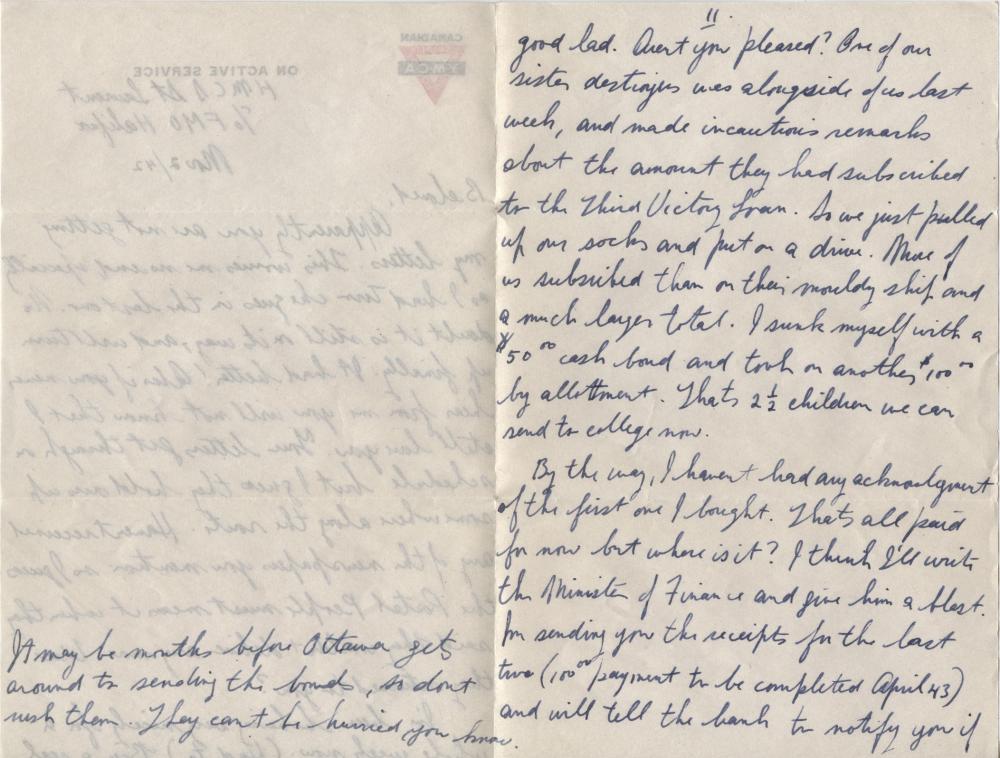 11
good lad. Arent you pleased? One of our
sister destroyers was alongside of us last
week, and made incautious remarks
about the amount they had subscribed
to the Third Victory Loan. So we just pulled
up our socks and put on a drive. More of
us subsribed than on their mouldy ship and
a much larger total. I sunk myself with a
$50.00 cash bond and took on another $100.00
by allottment. Thats 2 1/2 children we can
send to college now.
By the way, I havent had any acknowlgment
of the first one I bought. Thats all paid
for now but where is it? I think I'll write
the Minister of Finance and give him a blast.
Im sending you the receipts for the last
two (100.00 payment to be completed April 43)
and will tell the bank to notify you if
It may be months before Ottawa gets
around to sending the bonds, so dont
rush them. They can't be hurried you know.